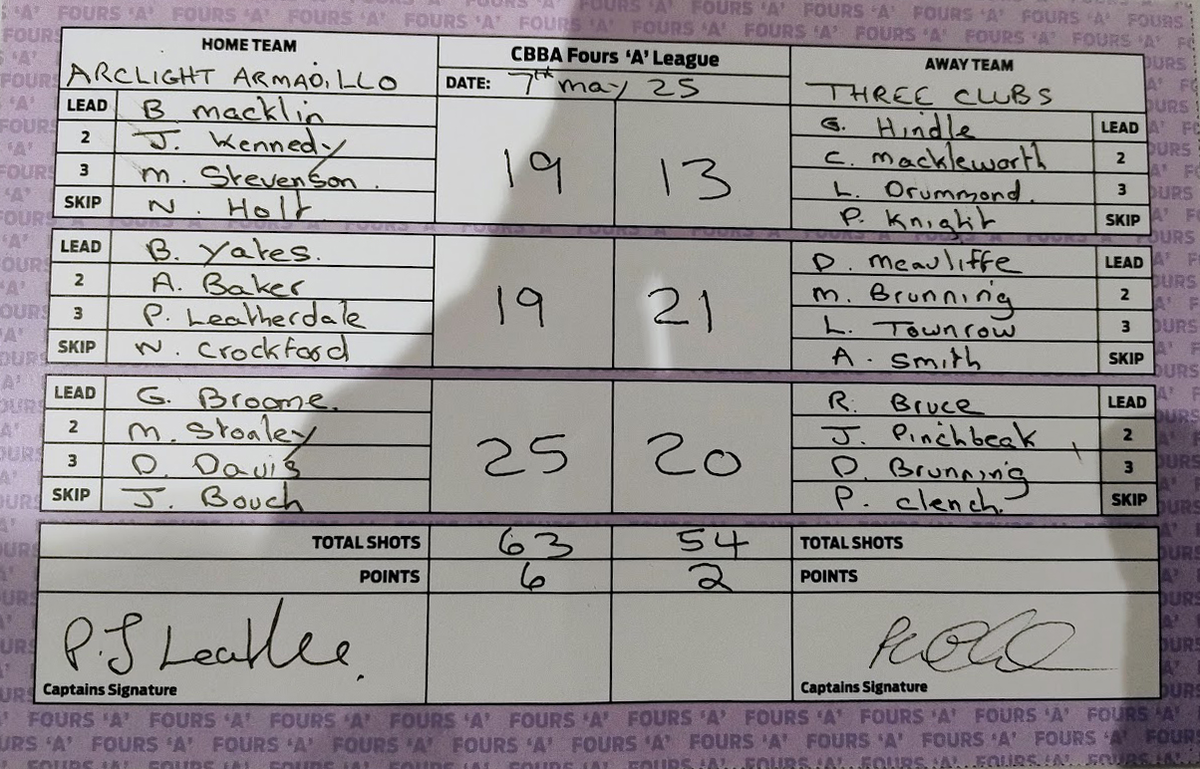 HOME TEAM
ARCLIGHT ARMADILLO
CBBA Fours 'A' League
DATE: 7th may 25
AWAY TEAM
THREE CLUBS
LEAD B macklin
2 J. Kennedy
3 m. Stevenson.
SKIP N. Holt
19 13
G. Hindle LEAD
C. mackleworth 2
L. Drummond. 3
P. Knight SKIP
LEAD B. Yates.
2 A. Baker
3 P. Leatherdale
SKIP N. Crockford
19 21
D. mcauliffe LEAD
m. Brunning 2
L. Townrow 3
A. Smith SKIP
LEAD G. Broome.
2 m. Stoaley
3 D. Davis
SKIP J. Bouch
25 20
R. Bruce LEAD
J. Pinchbeak 2
D. Brunning 3
P. clench. SKIP
TOTAL SHOTS 63 54 TOTAL SHOTS
POINTS 6 2 POINTS
Captains Signature
Captains Signature
FOURS 'A' FOURS 'A' FOURS 'A' FOURS 'A' FOURS 'A' FOURS 'A' FOURS 'A' FOURS 'A' FOURS 'A' FOURS 'A' FOURS 'A'